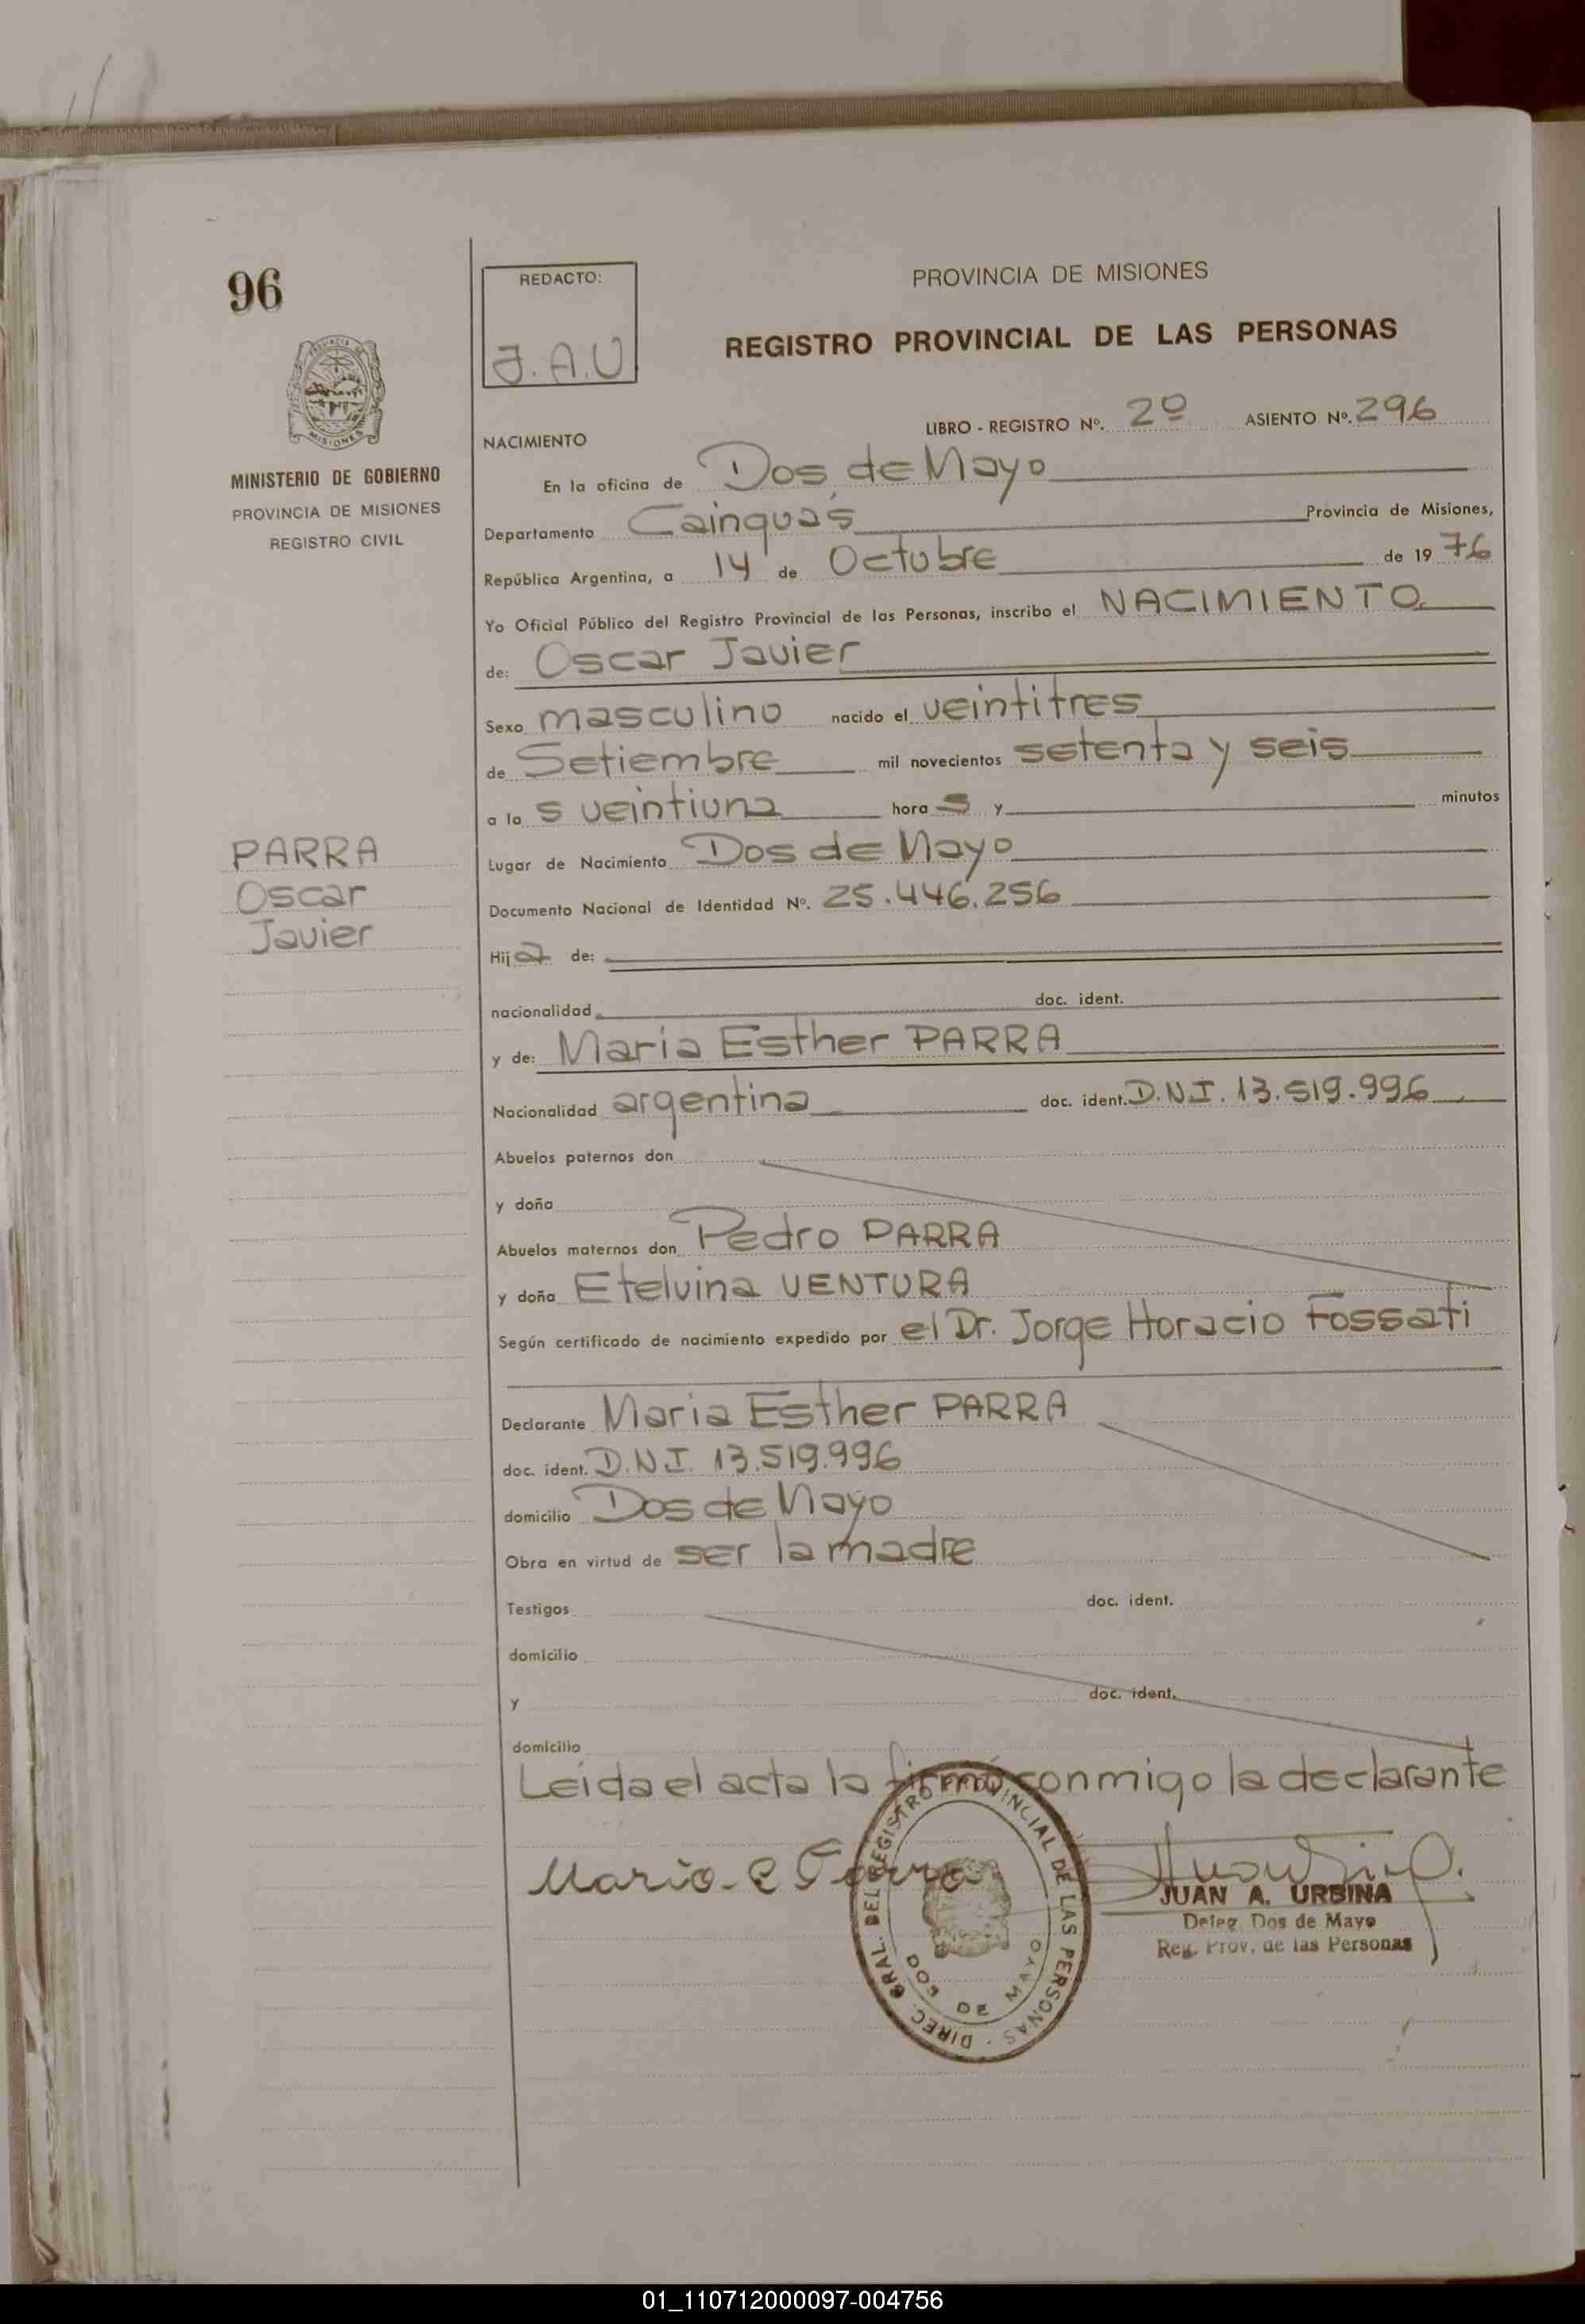 96
MINISTERIO DE GOBIERNO
PROVINCIA DE MISIONES
REGISTRO CIVIL
PARRA
Oscar
Javier
REDACTO:
J.A.U
PROVINCIA DE MISIONES
REGISTRO PROVINCIAL DE LAS PERSONAS
LIBRO - REGISTRO Nº. 2º ASIENTO Nº. 296
NACIMIENTO
En la oficina de Dos de Mayo
Departamento Cainguás Provincia de Misiones,
República Argentina, a 14 de Octubre de 19 76
Yo Oficial Público del Registro Provincial de las Personas, inscribo el NACIMIENTO
de: Oscar Javier
Sexo masculino nacido el veintitres
de Setiembre mil novecientos setenta y seis
a la s veintiuna hora s y minutos
Lugar de Nacimiento Dos de Mayo
Documento Nacional de Identidad Nº. 25.446.256
Hij de:
nacionalidad doc. ident.
y de: Maria Esther PARRA
Nacionalidad argentina doc. ident. D.N.I. 13.519.996
Abuelos paternos don
y doña
Abuelos maternos don Pedro PARRA
y doña Etelvina VENTURA
Según certificado de nacimiento expedido por el Dr. Jorge Horacio Fossati
Declarante Maria Esther PARRA
doc. ident. D.N.I. 13.519.996
domicilio Dos de Mayo
Obra en virtud de ser la madre
Testigos doc. ident.
domicilio
y doc. ident.
domicilio
Leida el acta la firmó conmigo la declarante
Maria E Parra
DIREC. GRAL. DEL REGISTRO PROVINCIAL DE LAS PERSONAS
DOS DE MAYO
JUAN A. URBINA
Deleg. Dos de Mayo
Reg. Prov. de las Personas
01_110712000097-004756